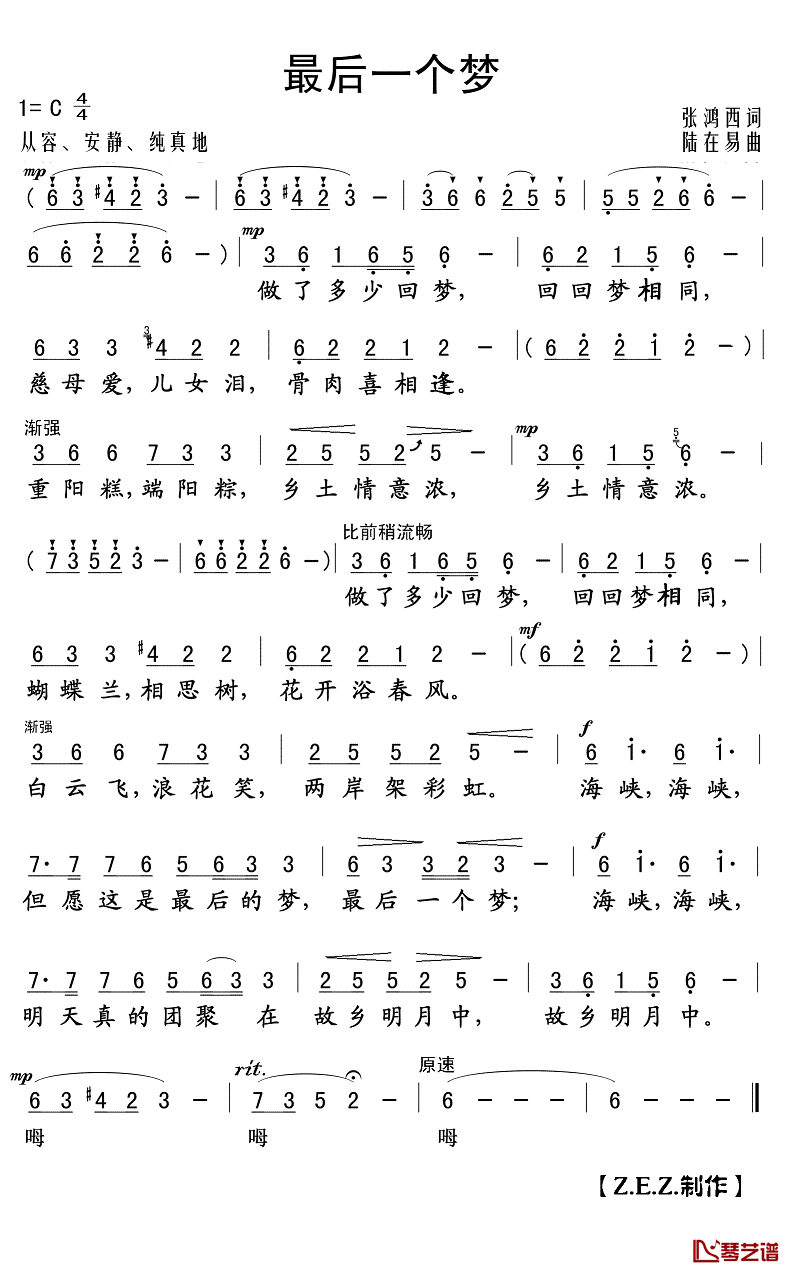 最后一个梦
1= C 4/4
张鸿西词
从容、安静、纯真地
陆在易曲
mp
( 6 3 #4 2 3 － | 6 3 #4 2 3 － | 3 6 6 2 5 5 | 5 5 2 6 6 － |
mp
6 6 2 2 6 － ) | 3 6 1 6 5 6 － | 6 2 1 5 6 － |
做了多少回梦， 回回梦相同，
3
6 3 3 #4 2 2 | 6 2 2 1 2 － | ( 6 2 2 1 2 － ) |
慈母爱，儿女泪， 骨肉喜相逢。
渐强 mp 5
3 6 6 7 3 3 | 2 5 5 2 5 － | 3 6 1 5 6 － |
重阳糕，端阳粽， 乡土情意浓， 乡土情意浓。
比前稍流畅
( 7 3 5 2 3 － | 6 6 2 2 6 － ) | 3 6 1 6 5 6 － | 6 2 1 5 6 － |
做了多少回梦， 回回梦相同，
mf
6 3 3 #4 2 2 | 6 2 2 1 2 － | ( 6 2 2 1 2 － ) |
蝴蝶兰，相思树， 花开浴春风。
渐强 f
3 6 6 7 3 3 | 2 5 5 2 5 － | 6 1· 6 1· |
白云飞，浪花笑， 两岸架彩虹。 海峡，海峡，
f
7· 7 7 6 5 6 3 3 | 6 3 3 2 3 － | 6 1· 6 1· |
但愿这是最后的梦， 最后一个梦； 海峡，海峡，
7· 7 7 6 5 6 3 3 | 2 5 5 2 5 － | 3 6 1 5 6 － |
明天真的团聚 在 故乡明月中， 故乡明月中。
mp rit. 原速
6 3 #4 2 3 － | 7 3 5 2 － | 6 － － － | 6 － － － ‖
呣 呣 呣
【Z.E.Z.制作】
琴艺谱